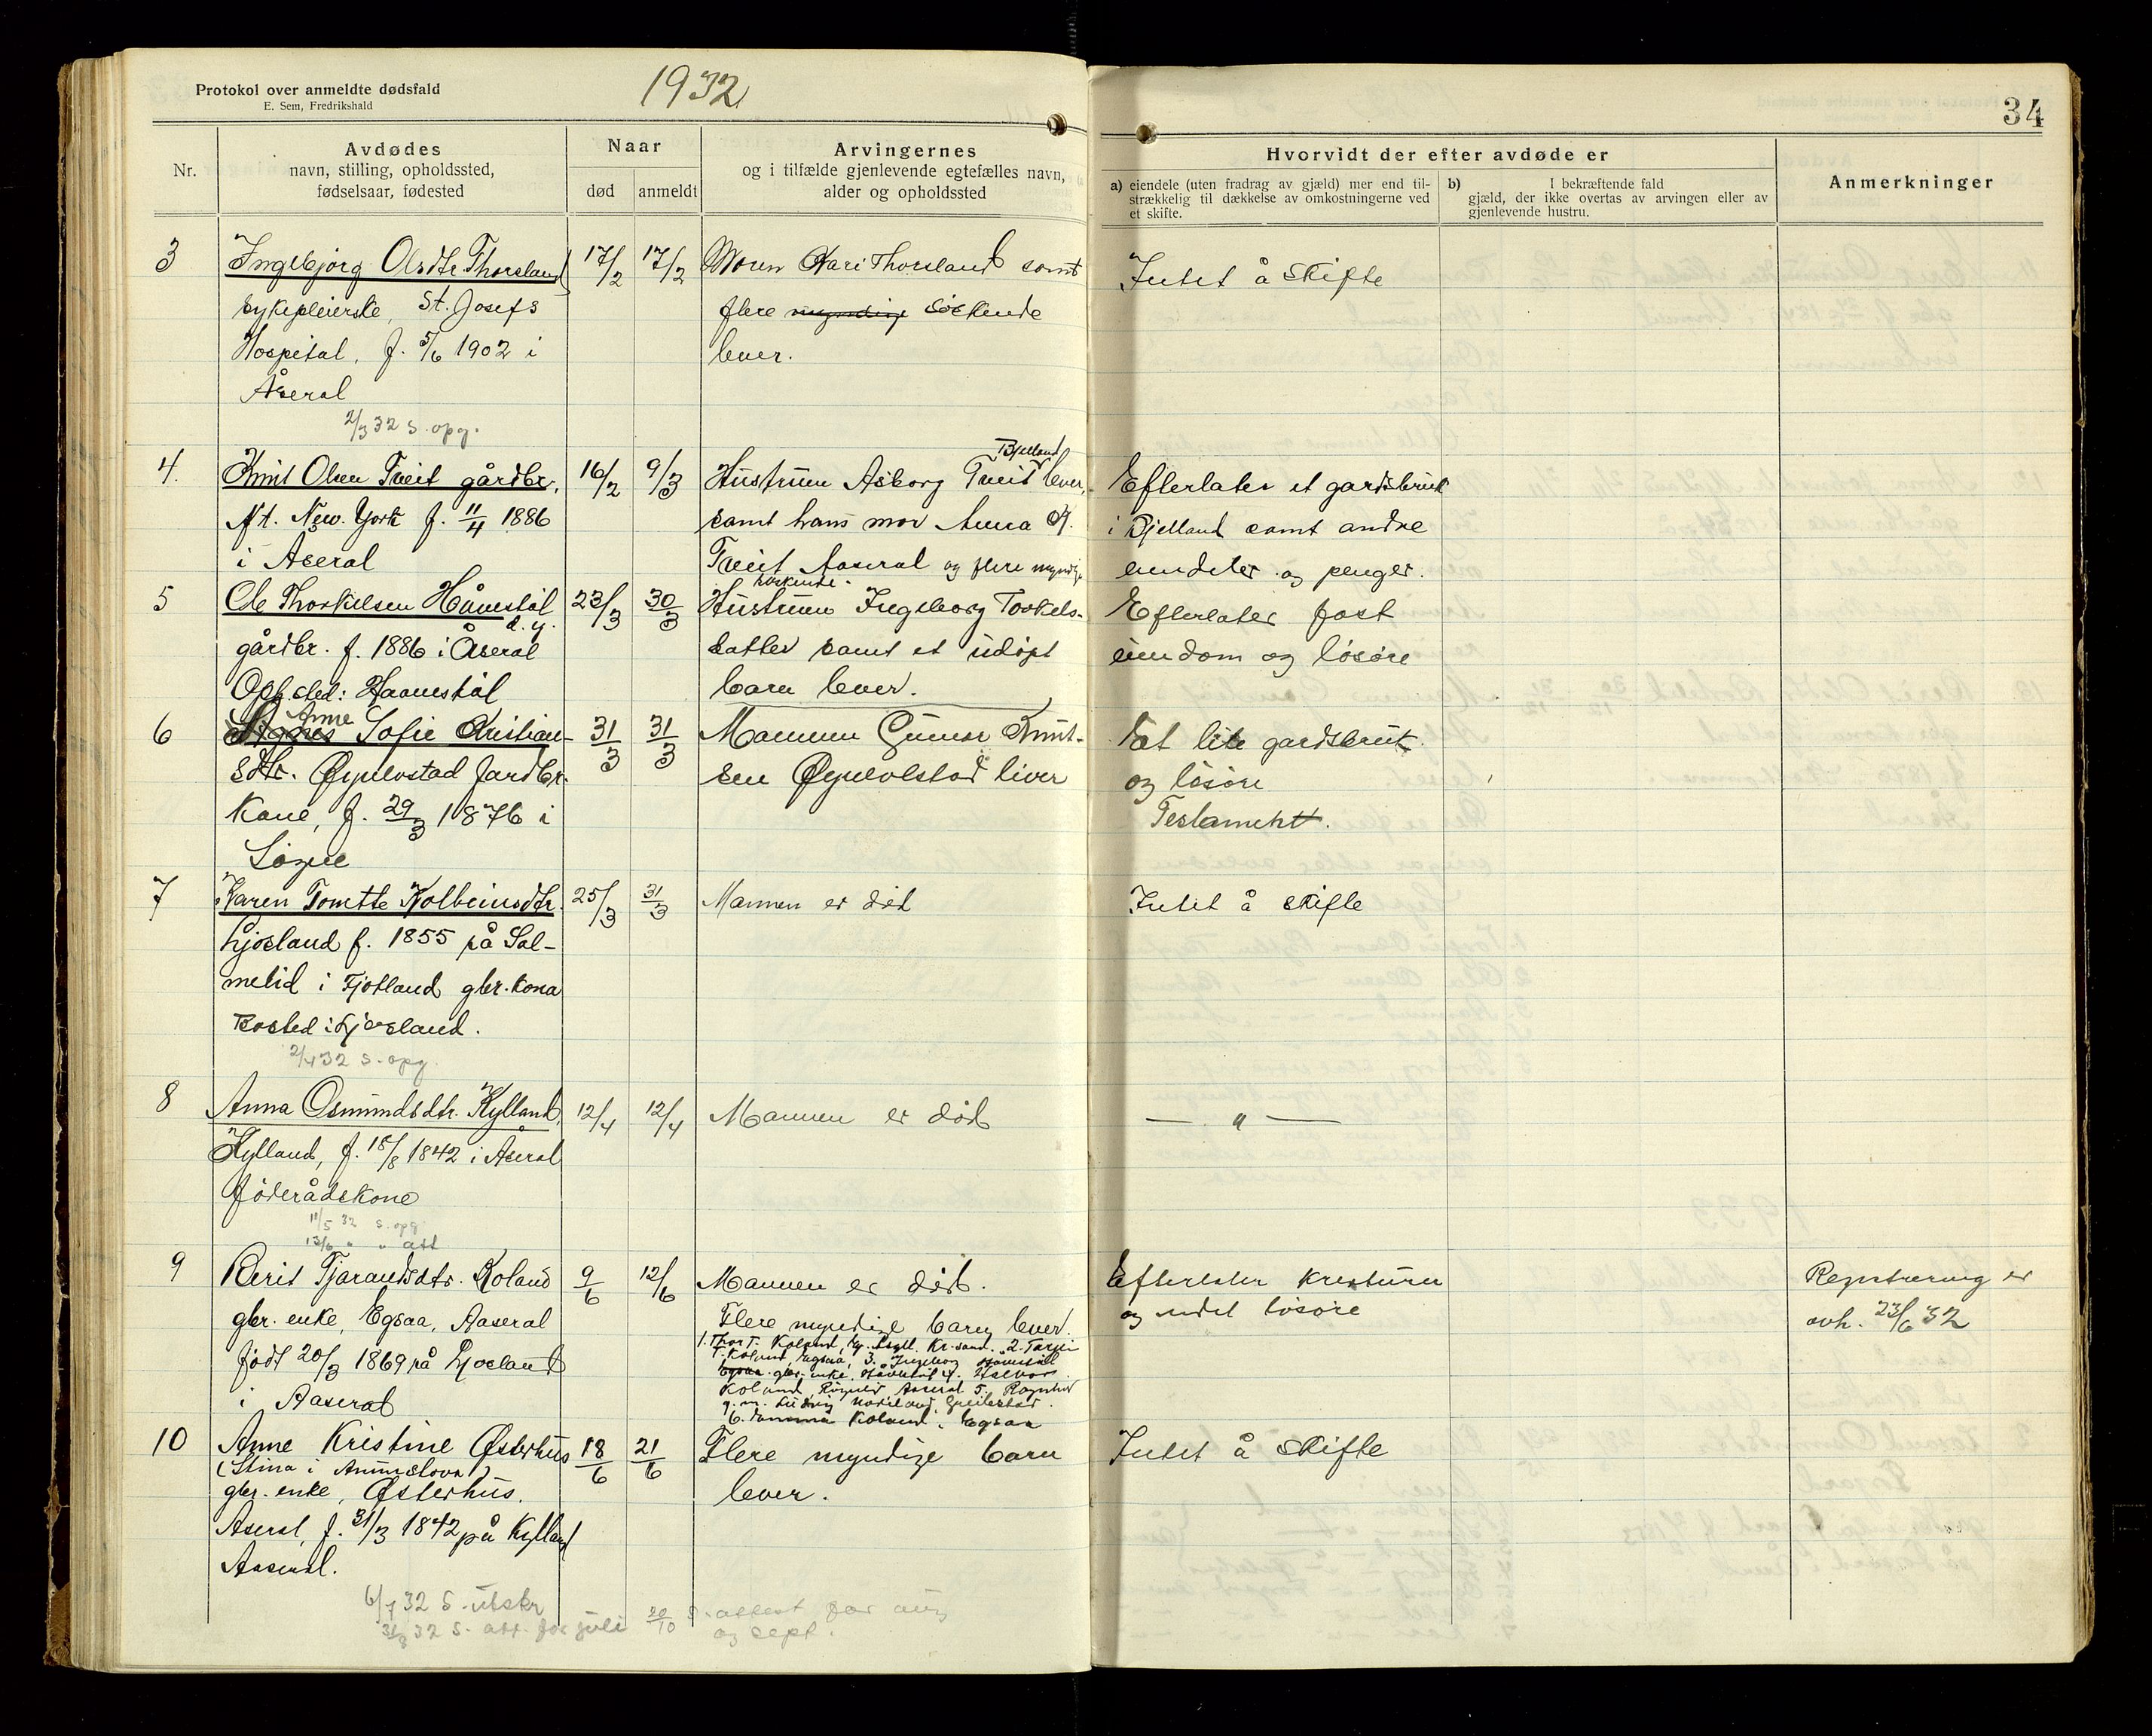 Protokol over anmeldte dødsfald
E. Sem, Fredrikshald
1932
34
Nr.
Avdødes
navn, stilling, opholdssted,
fødselsaar, fødested
Naar
død
anmeldt
Arvingernes
og i tilfælde gjenlevende egtefælles navn,
alder og opholdssted
Hvorvidt der efter avdøde er
a) eiendele (uten fradrag av gjæld) mer end til-
strækkelig til dækkelse av omkostningerne ved
et skifte.
b) I bekræftende fald
gjæld, der ikke overtas av arvingen eller av
gjenlevende hustru.
Anmerkninger
3
Ingebjørg Olsdtr. Thorsland
sykepleierske, St. Josefs
Hospital, f. 5/6 1902 i
Åseral
2/3 32 s. opg.
17/2
17/2
Moren Kari Thorsland samt
flere myndige søskende
lever.
Intet å skifte
4.
Knut Olsen Tveit gårdbr.
N.t. New York f. 11/4 1886
i Aseral
16/2
9/3
Bjelland
Hustruen Asborg Tveit lever,
samt hans mor Anna
Tveit Aaseral og flere myndige
søskende.
Efterlater et gardsbruk
i Bjelland samt andre
eiendeler og penger.
5
Ole Thorkilsen Håvestøl
d.y.
gårdbr. f. 1886 i Åseral
Oph.sted: Haavestøl
23/3
30/3
Hustruen Ingeborg Torkels-
datter samt et udøpt
barn lever.
Efterlater fast
eiendom og løsøre
6
Agnes Anne Sofie Kristian-
sdtr. Øynevstad gardbr.
kone, f. 29/3 1876 i
Søgne
31/3
31/3
Mannen Gunnar Knut-
sen Øynevstad liver
Eet lite gardsbruk
og løsøre
Testament.
7
Karen Tomette Kolbeinsdtr.
Ljosland f. 1855 på Sal-
melid i Fjotland gbr. kona
Bosted: Ljosland.
2/4 32 s. opg.
25/3
31/3
Mannen er død
Intet å skifte
8
Anna Osmundsdtr. Kylland,
Kylland, f. 18/8 1842 i Åseral
føderådskone
11/5 32 s. opg
13/6 " " att
12/4
12/4
Mannen er död
— " —
9
Berit Tjaraldsdtr. Roland
gbr. enke, Egsaa, Aaseral
født 20/3 1869 på Ljosland
i Aaseral
9/6
12/6
Mannen er død.
Flere myndige barn lever.
1. Thor T. Koland, Kr.sand. 2. Tarjei
T. Koland, Egsaa, 3. Ingeborg Håvestøl
Egsaa gbr. enke, Håvestøl 4. Halvor
Koland, Aaseral 5. Ragnhild
g.m.
6. Koland, Egsaa
Efterlater kreaturer
og endel løsøre
Registrering er
avh. 23/6 32
10
Anne Kristine Østerhus
(Stina i Annestova)
gbr. enke, Østerhus.
Aseral, f. 31/3 1842 på Kylland
Aaseral.
6/7 32 S. utskr
31/8 32 S. att. for juli
20/10 S. attest for aug
og sept.
18/6
21/6
Flere myndige barn
lever.
Intet å skifte